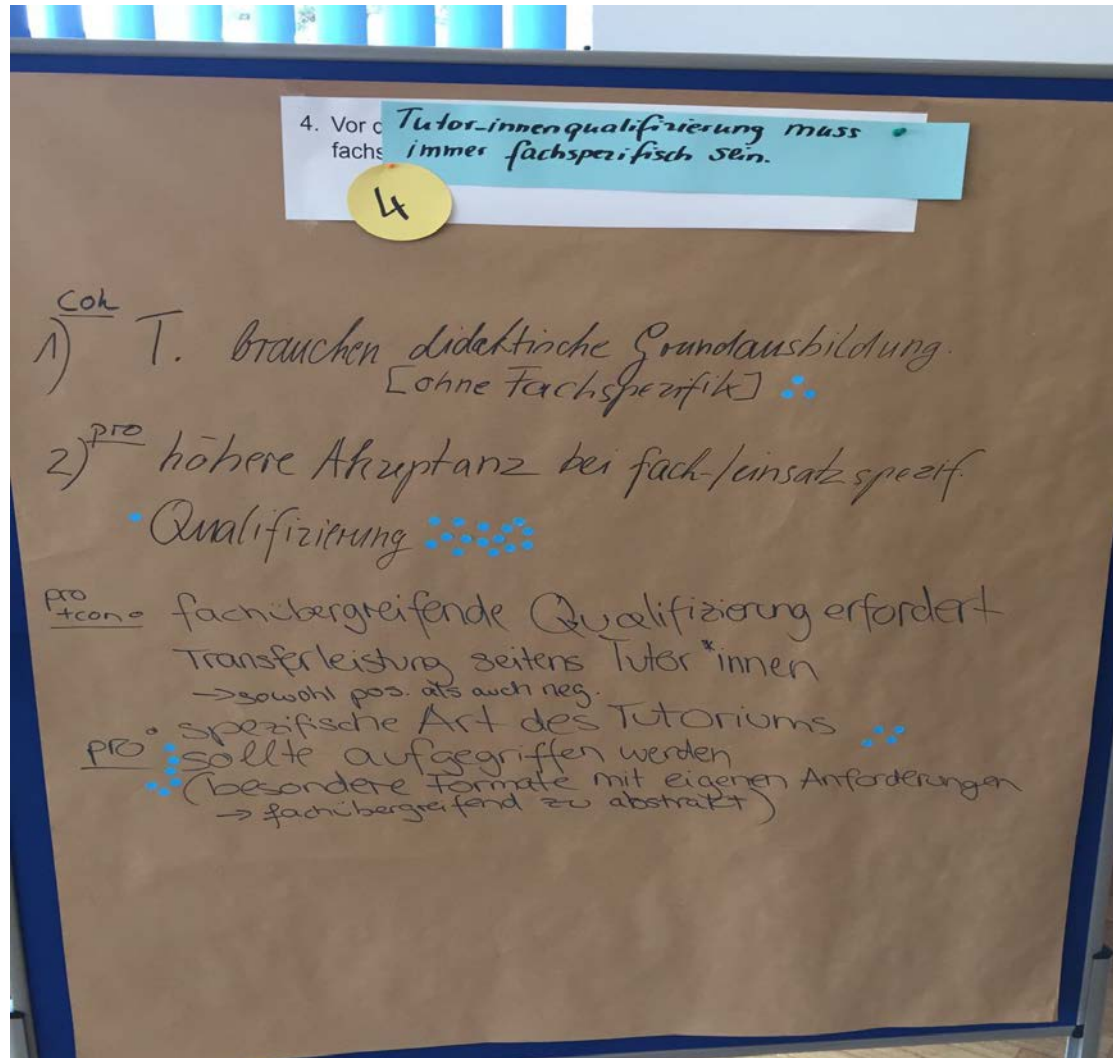 4. Vor d
fachs
Tutor_innenqualifizierung muss
immer fachspezifisch sein.
4
con
1) T. brauchen didaktische Grundausbildung.
[ohne Fachspezifik]
pro
2) höhere Akzeptanz bei fach-/einsatzspezif.
Qualifizierung
pro
+con
fachübergreifende Qualifizierung erfordert
Transferleistung seitens Tutor*innen
→ sowohl pos. als auch neg.
spezifische Art des Tutoriums
pro sollte aufgegriffen werden
(besondere Formate mit eigenen Anforderungen
→ fachübergreifend zu abstrakt)